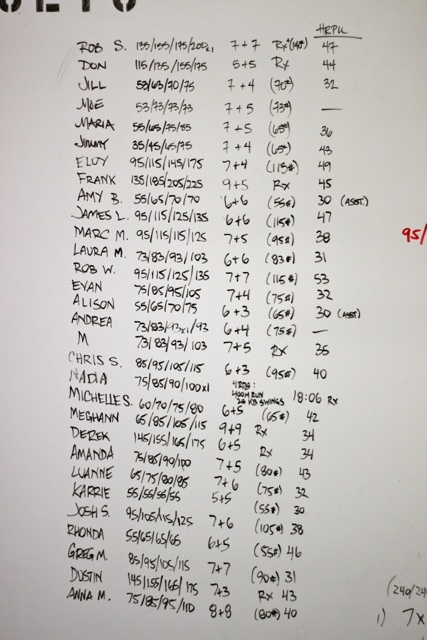 HRPU
ROB S. 135/155/175/200x1 7+7 Rx+(140#) 47
DON 115/135/155/175 5+5 Rx 44
JILL 53/63/70/75 7+4 (70#) 32
MOE 53/73/73/73 7+5 (73#) —
MARIA 55/65/75/85 7+5 (65#) 36
Jimmy 35/45/65/75 7+4 (65#) 43
ELOY 95/115/145/175 7+4 (115#) 49
FRANK 135/185/205/225 9+5 Rx 45
AMY B. 55/65/70/70 6+6 (55#) 30 (ASST.)
JAMES L. 95/115/125/135 6+6 (115#) 47
MARC M. 95/115/115/125 7+5 (95#) 38
95/
LAURA M. 73/83/93/103 6+6 (83#) 31
ROB W. 95/115/125/135 7+7 (115#) 53
EVAN 75/85/95/105 7+4 (75#) 32
ALISON 55/65/70/75 6+3 (65#) 30 (ASST)
ANDREA 73/83/93x1/93 6+4 (75#) —
M 73/83/93/103 7+5 Rx 35
CHRIS S. 85/95/105/115 6+3 (95#) 40
NADIA 75/85/90/100x1 4 RDS:
400M RUN
KB SWINGS 18:06 Rx
MICHELLE S. 60/70/75/80 6+5 (65#) 42
MEGHANN 65/85/105/115 9+9 Rx 34
DEREK 145/155/165/175 6+5 Rx 34
AMANDA 75/85/90/100 7+5 (80#) 43
LUANNE 65/75/80/85 7+6 (75#) 32
KARRIE 55/55/55/55 5+5 (55#) 30
JOSH S. 95/105/115/125 7+6 (105#) 38
RHONDA 55/65/65/65 6+5 (55#) 46
GREG M. 85/95/105/115 7+7 (90#) 31
DUSTIN 145/155/165/175 7+3 Rx 43
ANNA M. 75/85/95/110 8+8 (80#) 40
(240/24
1) 7x